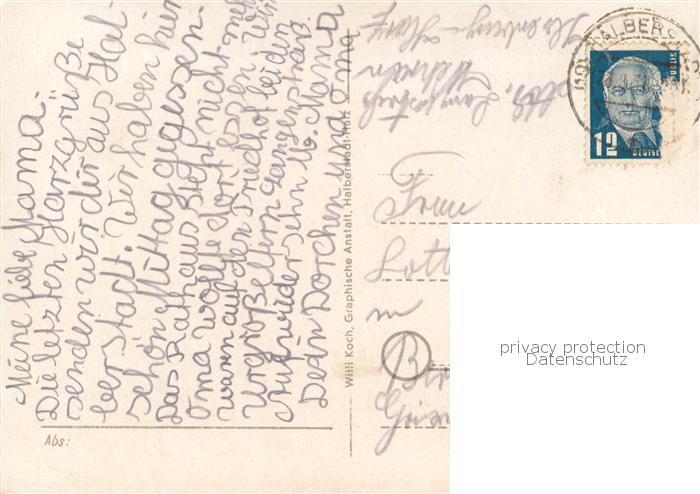 Meine liebe Mama.
Die letzten Harzgrüße
senden wir dir aus Hal-
berstadt. Wir haben hier
schön Mittag gegessen.
Das Rathaus steht nicht mehr
Oma wollte dort essen. Wir
waren auf den Friedhof bei den
Urgroßeltern Langenstraß.
Aufwidersehn M. Mama
Dein Dorchen und Oma
Abs:
Willi Koch, Graphische Anstalt, Halberstadt-Harz
Ilsenburg-Harz
HALBERSTADT
12
DEUTSCHE
REPUBLIK
Frau
Lott
in
privacy protection
Datenschutz